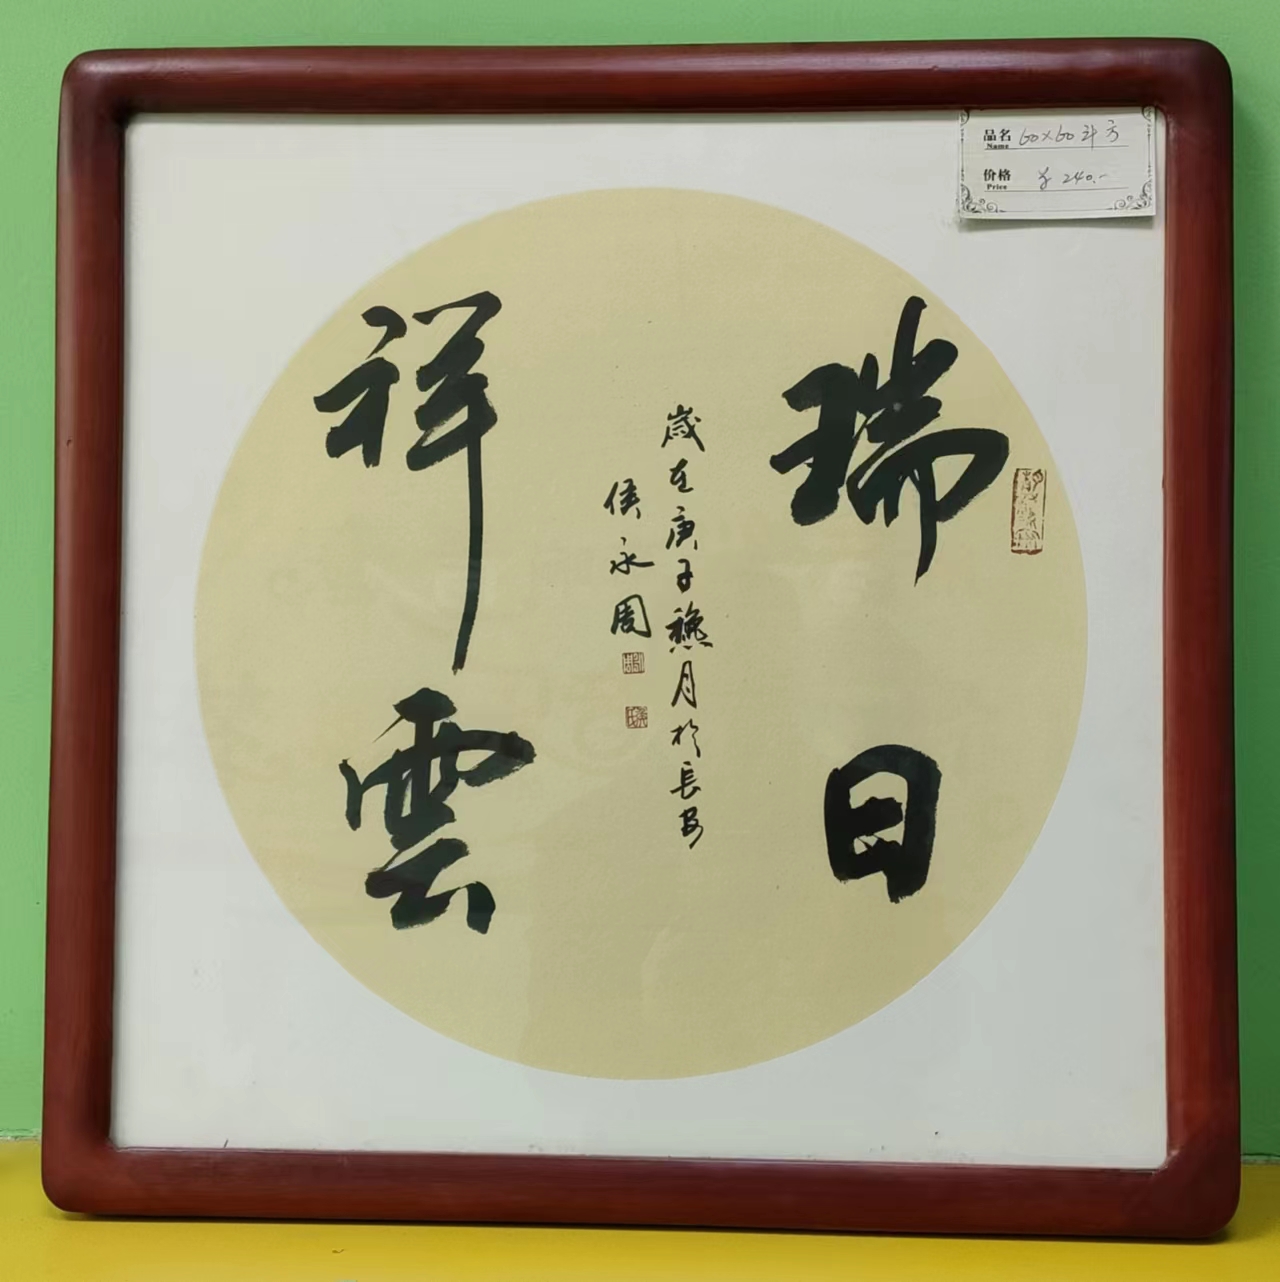 瑞日
祥雲
歲在庚子龝月於長安
侯永周
品名 60×60斗方
Name
价格 ¥240.-
Price